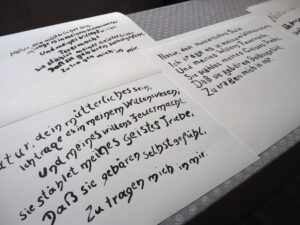 Natur, dein mütterliches Sein,
Ich trage es in meinem Willenswesen;
Und meines Willens Feuermacht,
Sie stählet meines Geistes Triebe,
Daß sie gebären Selbstgefühl,
Zu tragen mich in mir.
Natur, dein mütterliches Sein,
Ich trage es in meinem Willenswesen;
Und meines Willens Feuermacht,
Sie stählet meines Geistes Triebe,
Daß sie gebären Selbstgefühl,
Zu tragen mich in mir.
Natur, dein mütterliches Sein,
Und meines Willens
Feuermacht,
Sie stählet meines Geistes Triebe,
Daß sie gebären Selbstgefühl,
Zu tragen mich in mir.